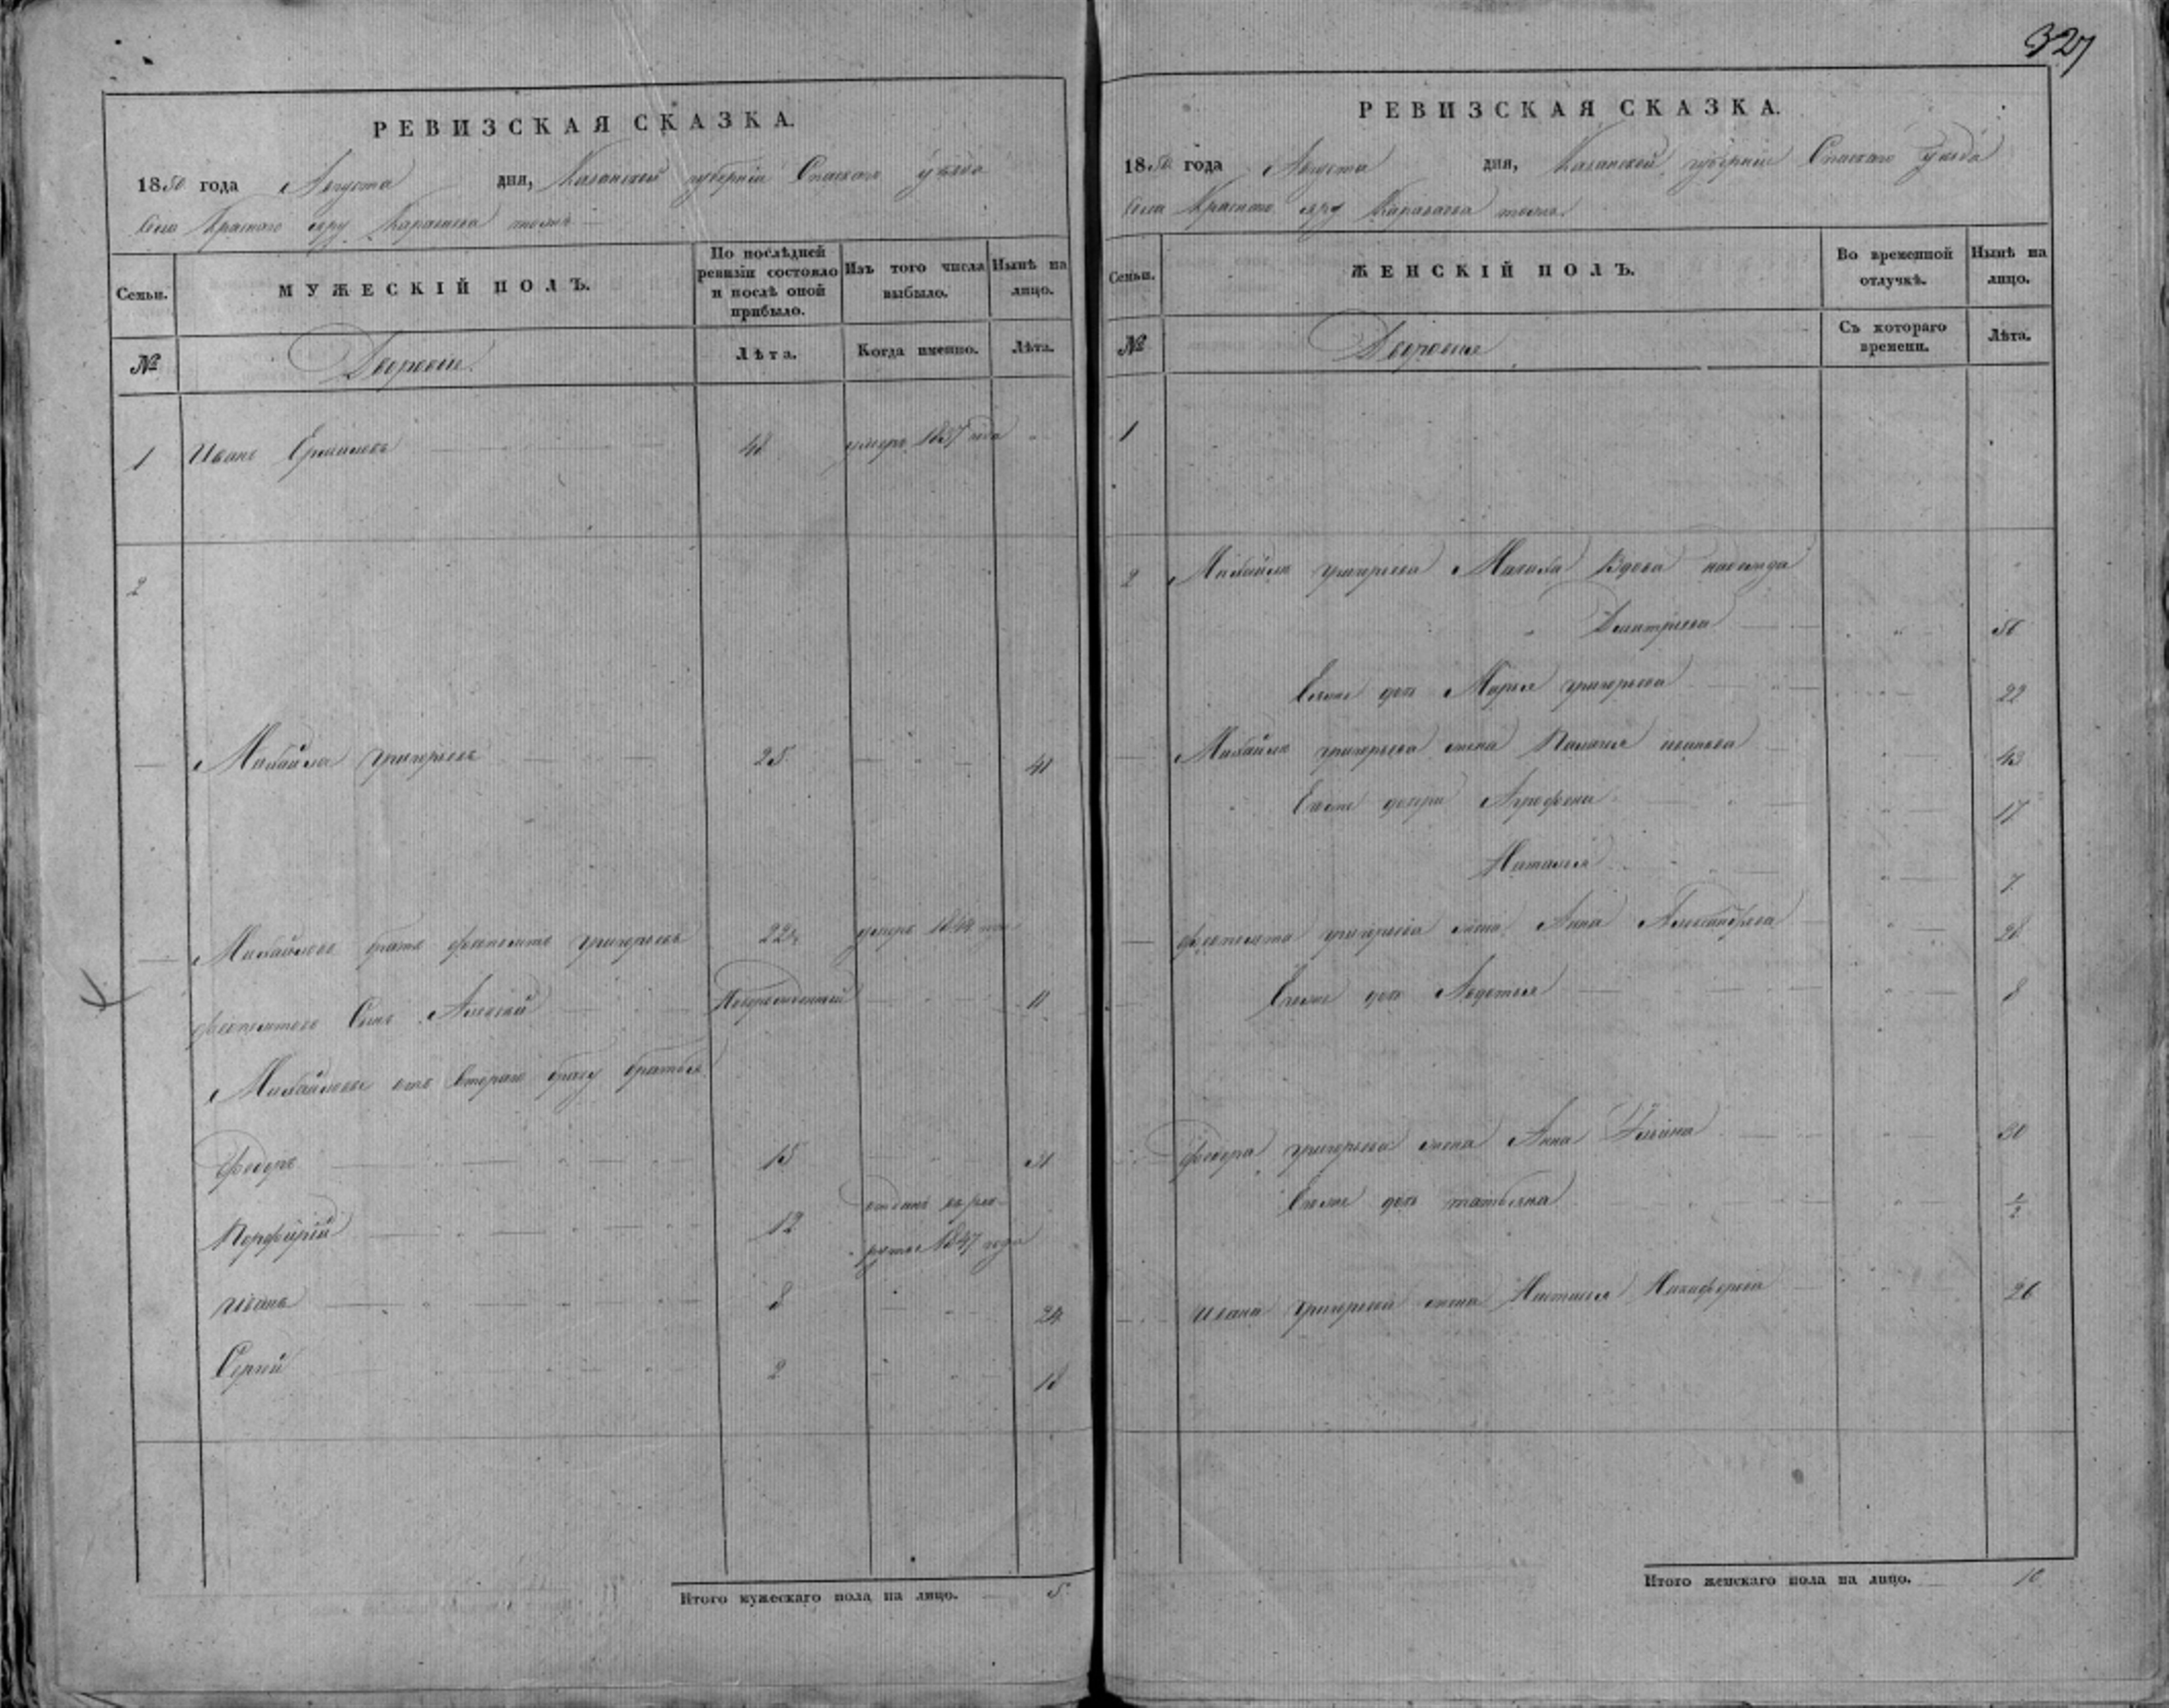 327
РЕВИЗСКАЯ СКАЗКА.
1850 года Августа дня, Казанской губернiи Спаскаго уѣзда
Села Краснаго яру Караваева тожъ
Семьи. МУЖЕСКІЙ ПОЛЪ. По послѣдней ревизіи состояло и послѣ оной прибыло. Изъ того числа выбыло. Нынѣ на лицо.
№ Дворовые. Лѣта. Когда именно. Лѣта.
1 Иванъ Ермиловъ 48 умеръ 1837 года
2
Михайла григорьевъ 25 41
Михайловъ братъ феопемптъ григорьевъ 22½ умеръ 1844 года
феопемптовъ Сынъ Алексей Новорожденный 11
Михайловы отъ втораго браку братья
федоръ 15 31
Порфирій 12 отданъ въ рек-
руты 1847 года
Иванъ 8 24
Сергей 2 18
Итого мужескаго пола на лицо. 5
РЕВИЗСКАЯ СКАЗКА.
1850 года Августа дня, Казанской губернiи Спаскаго уѣзда
Села Краснаго яру Караваева тожъ
Семьи. ЖЕНСКІЙ ПОЛЪ. Во временной отлучкѣ. Нынѣ на лицо.
№ Дворовыя Съ котораго времени. Лѣта.
1
2 Михайла григорьева Мачиха Вдова надежда
Дмитриева 56
Еяже дочь Марья григорьева 22
Михайла григорьева жена Палагея иванова 43
Еяже дочери Аграфена 17
Наталья 7
феопемпта григорьева жена Анна Александрова 28
Еяже дочь Авдотья 8
федора григорьева жена Анна Ильина 30
Еяже дочь татьяна ½
ивана григорьева жена Настасья Никифорова 26
Итого женскаго пола на лицо. 10